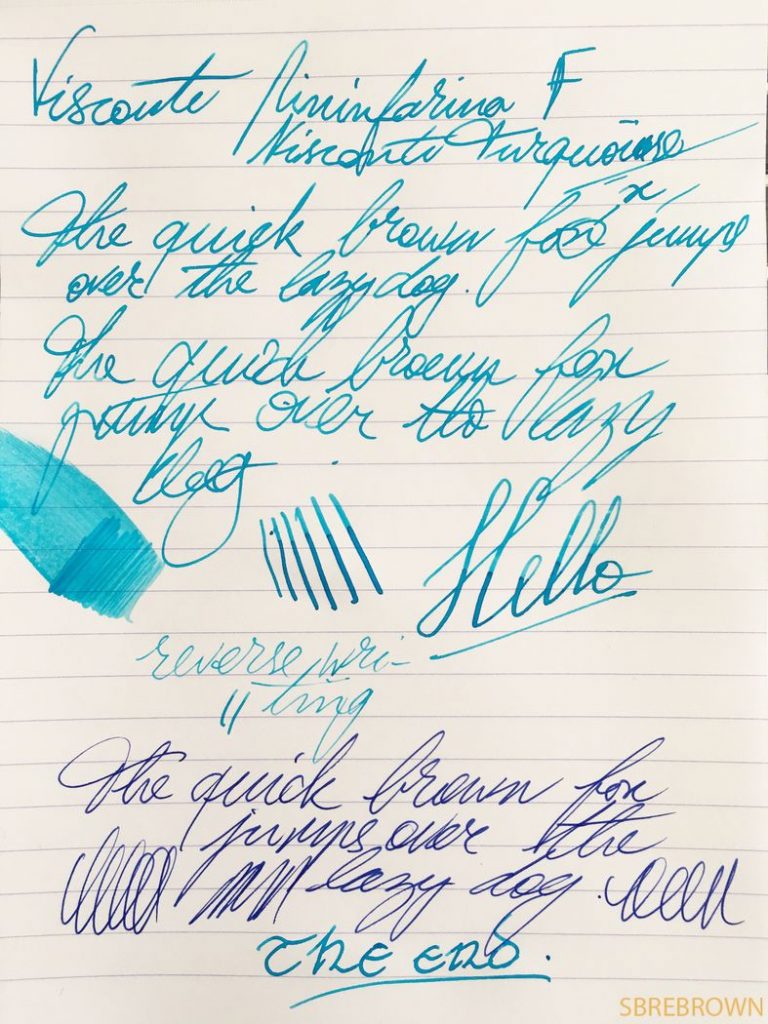 Visconti Pininfarina F
Visconti Turquoise
x
The quick brown fox jumps
over the lazy dog.
The quick brown fox
jumps over the lazy
dog.
Hello
reverse wri-
ting
The quick brown fox
jumps over the
lazy dog.
The end.
SBREBROWN